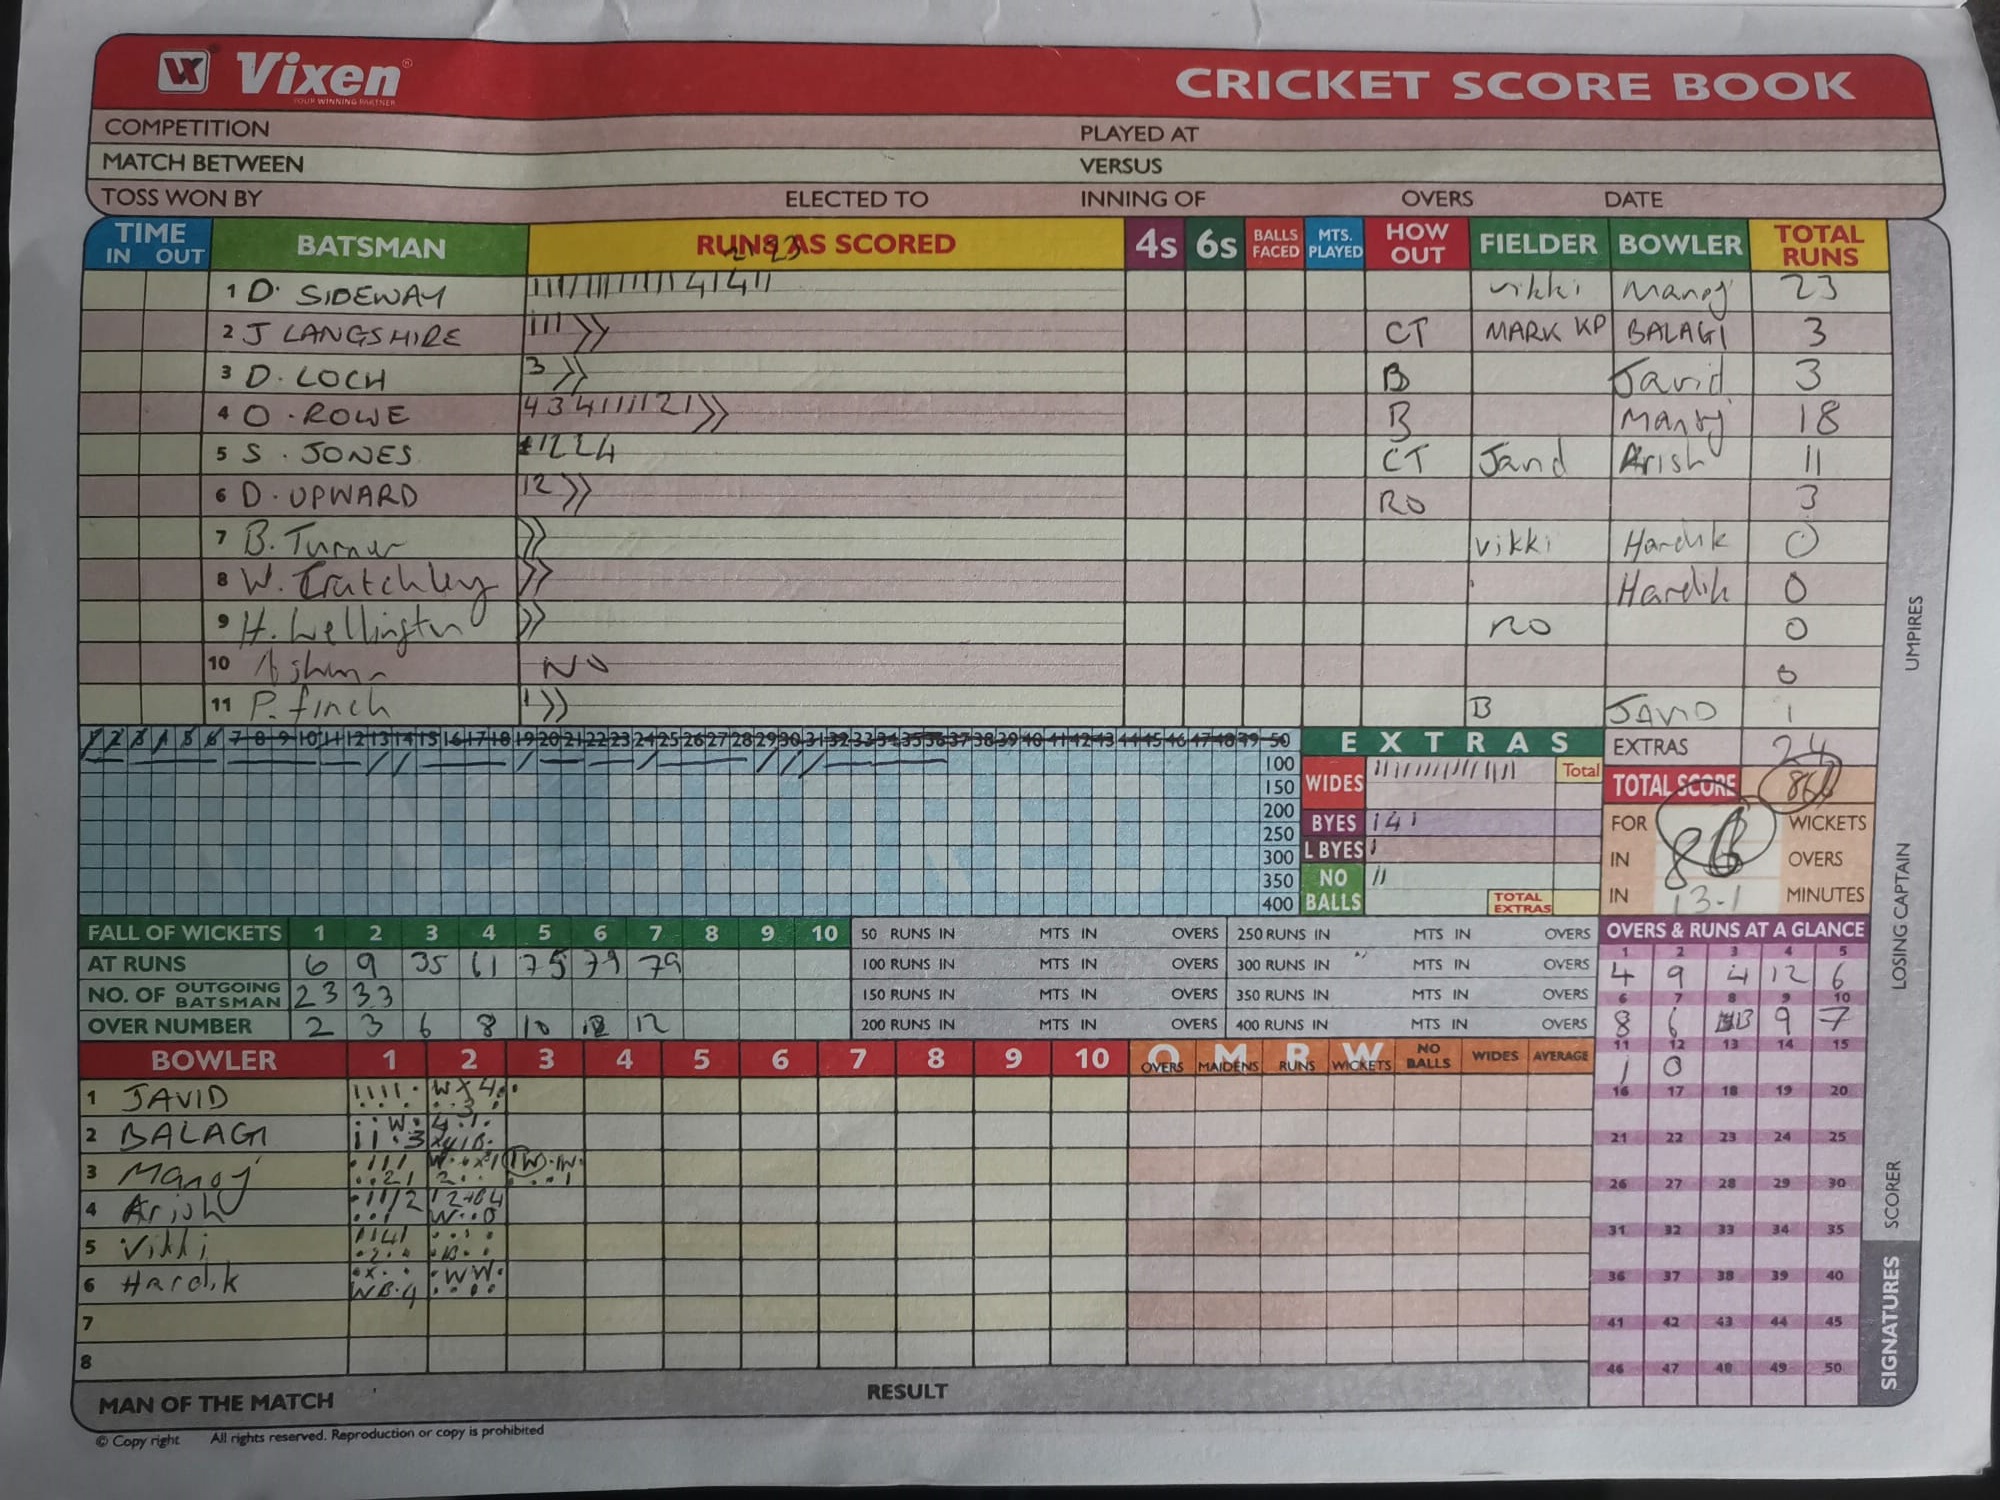 VX Vixen®
YOUR WINNING PARTNER
CRICKET SCORE BOOK
COMPETITION PLAYED AT
MATCH BETWEEN VERSUS
TOSS WON BY ELECTED TO INNING OF OVERS DATE
TIME IN OUT BATSMAN RUNS AS SCORED 4s 6s BALLS FACED MTS. PLAYED HOW OUT FIELDER BOWLER TOTAL RUNS
1 D. SIDEWAY vikki Manoj 23
2 J LANGSHIRE 111 CT MARK KP BALAGI 3
3 D. LOCH 3 B Javid 3
4 O. ROWE 4341111121 B Manoj 18
5 S. JONES 1224 CT Javid Arish 11
6 D. UPWARD 12 RO 3
7 B. Turner vikki Hardik 0
8 W. Cratchley Hardik 0
9 H. Wellington RO 0
10 NO 0
11 P. finch 1 B JAVID 1
1 2 3 4 5 6 7 8 9 10 11 12 13 14 15 16 17 18 19 20 21 22 23 24 25 26 27 28 29 30 31 32 33 34 35 36 37 38 39 40 41 42 43 44 45 46 47 48 49 50
100
150
200
250
300
350
400
EXTRAS
WIDES Total
BYES 1 4 1
L BYES 1
NO BALLS 11
TOTAL EXTRAS
EXTRAS 24
TOTAL SCORE 86
FOR WICKETS
IN OVERS
IN 13.1 MINUTES
FALL OF WICKETS 1 2 3 4 5 6 7 8 9 10
AT RUNS 6 9 35 61 75 79 79
NO. OF OUTGOING BATSMAN 23 33
OVER NUMBER 2 3 6 8 10 12 12
50 RUNS IN MTS IN OVERS 250 RUNS IN MTS IN OVERS
100 RUNS IN MTS IN OVERS 300 RUNS IN MTS IN OVERS
150 RUNS IN MTS IN OVERS 350 RUNS IN MTS IN OVERS
200 RUNS IN MTS IN OVERS 400 RUNS IN MTS IN OVERS
OVERS & RUNS AT A GLANCE
1 2 3 4 5
4 9 4 12 6
6 7 8 9 10
8 6 13 9 7
11 12 13 14 15
1 0
16 17 18 19 20
21 22 23 24 25
26 27 28 29 30
31 32 33 34 35
36 37 38 39 40
41 42 43 44 45
46 47 48 49 50
BOWLER 1 2 3 4 5 6 7 8 9 10 O OVERS M MAIDENS R RUNS W WICKETS NO BALLS WIDES AVERAGE
1 JAVID
2 BALAGI
3 Manoj
4 Arish
5 Vikki
6 Hardik
7
8
MAN OF THE MATCH RESULT
© Copy right All rights reserved. Reproduction or copy is prohibited
UMPIRES
LOSING CAPTAIN
SCORER
SIGNATURES